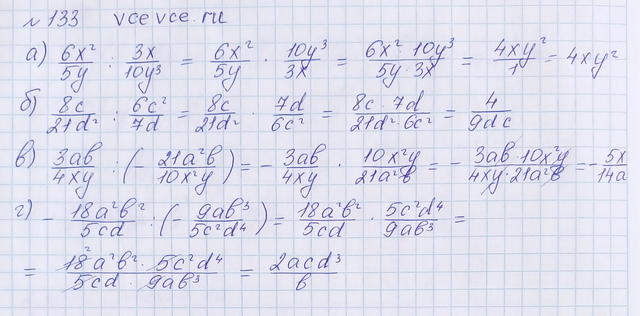 № 133 vcevce.ru
а) 6x²/5y : 3x/10y³ = 6x²/5y · 10y³/3x = 6x² · 10y³/5y · 3x = 4xy²/1 = 4xy²
б) 8c/21d² : 6c²/7d = 8c/21d² · 7d/6c² = 8c · 7d/21d² · 6c² = 4/9dc
в) 3ab/4xy : (- 21a²b/10x²y) = - 3ab/4xy · 10x²y/21a²b = - 3ab · 10x²y/4xy · 21a²b = - 5x/14a
г) - 18a²b²/5cd : (- 9ab³/5c²d⁴) = 18a²b²/5cd · 5c²d⁴/9ab³ =
= 18² a²b² · 5c²d⁴/5cd · 9ab³ = 2acd³/b